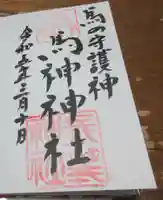 馬の守護神
馬神神社
令和五年三月十日